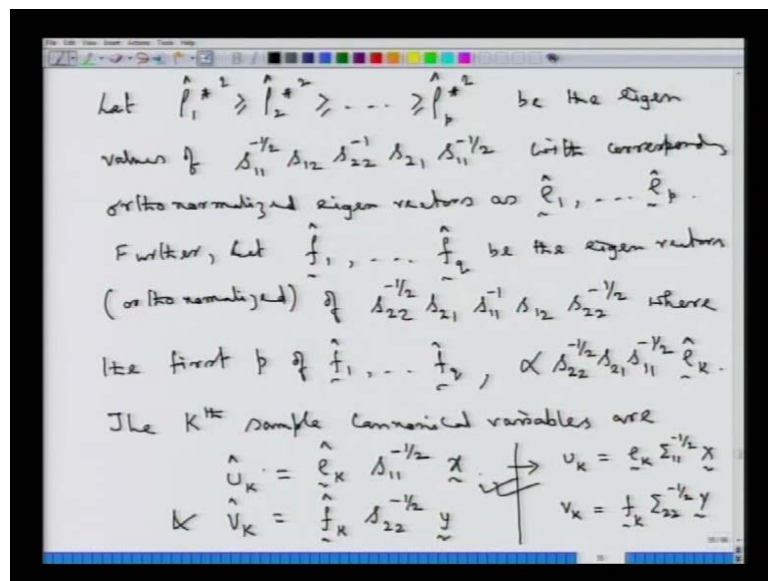 File Edit View Insert Actions Tools Help
Let ρ̂₁*² ≥ ρ̂₂*² ≥ . . . ≥ ρ̂ₚ*² be the eigen
values of S₁₁^{-1/2} S₁₂ S₂₂^{-1} S₂₁ S₁₁^{-1/2} with corresponding
orthonormalized eigen vectors as ê₁, . . . êₚ.
Further, let f̂₁, . . . f̂_q be the eigen vectors
(orthonormalized) of S₂₂^{-1/2} S₂₁ S₁₁^{-1} S₁₂ S₂₂^{-1/2} where
the first p of f̂₁, . . . f̂_q, ∝ S₂₂^{-1/2} S₂₁ S₁₁^{-1/2} ê_K.
The Kth sample cannonical variables are
Û_K = ê_K S₁₁^{-1/2} x → U_K = e_K Σ₁₁^{-1/2} x
& V̂_K = f̂_K S₂₂^{-1/2} y V_K = f_K Σ₂₂^{-1/2} y